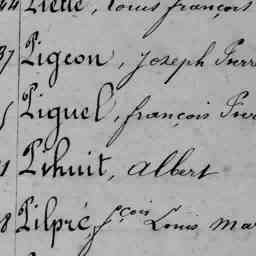 Piette, Louis françois
Pigeon, Joseph Pierr
Piguel, françois
Pihuit, Albert
Pilpré, fçois Louis Ma